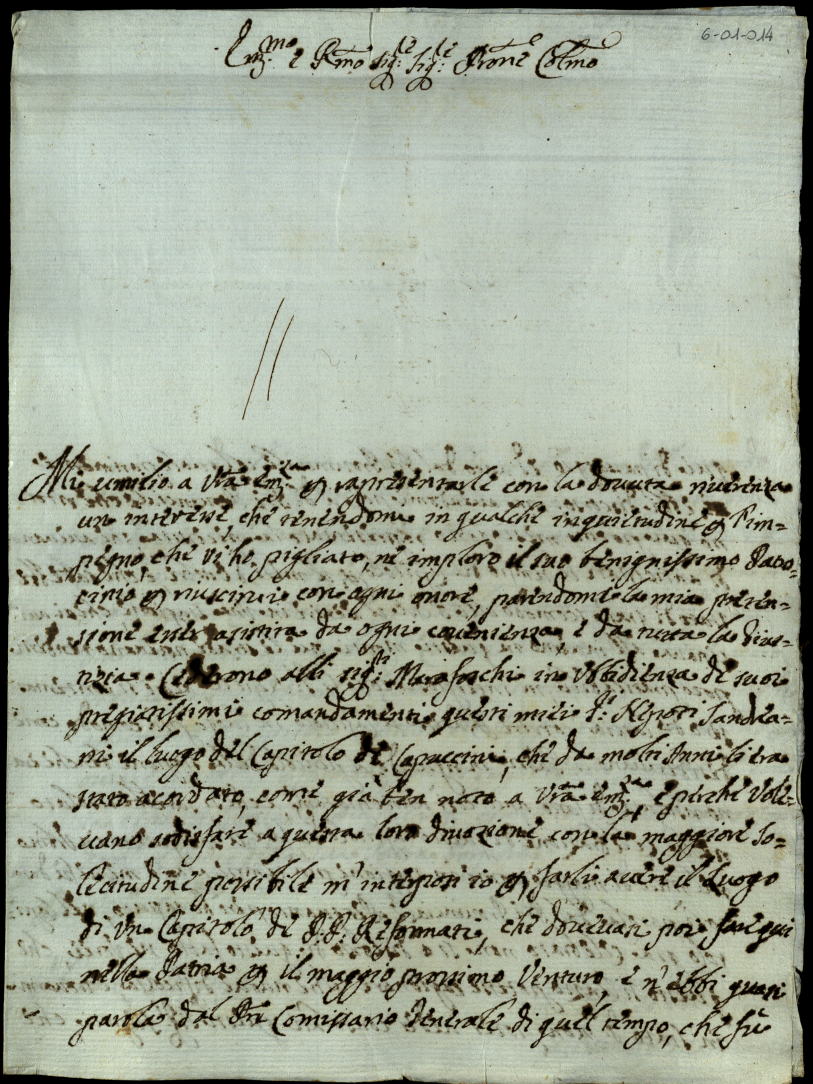 6-01-014
Em.mo e Rmo sig.re sig.re Prone Colmo
Mi umilio a Vra Em.za per rapresentarle con la dovuta riverenza
un interesse, che tenendomi in qualche inquietudine per l'im=
pegno, che vi ho pigliato, ne imploro il suo benignissimo Patro=
cinio per riuscirvi con ogni onore, parendomi la mia preten=
sione esser assistita da ogni convenienza, e da tutta la
Cederono alli sig.ri Marefoschi in Ubbidienza de suoi
pregiatissimi comandamenti questi miei Nepoti
ni il luogo del Capitolo de Capuccini, che da molti Anni li era
stato acordato, come già ben noto a Vra Em.za, e perche vole=
vano sodisfare a questa loro divozione con la maggiore so=
lecitudine possibile m'interposi io per farli avere il Luogo
di un Capitolo de P.P. Reformati, che dovevasi poi fare qui
nella Patria per il maggio prossimo Venturo, e n'ebbi quasi
parola dal Pre Comissario Generale di quel tempo, che fù